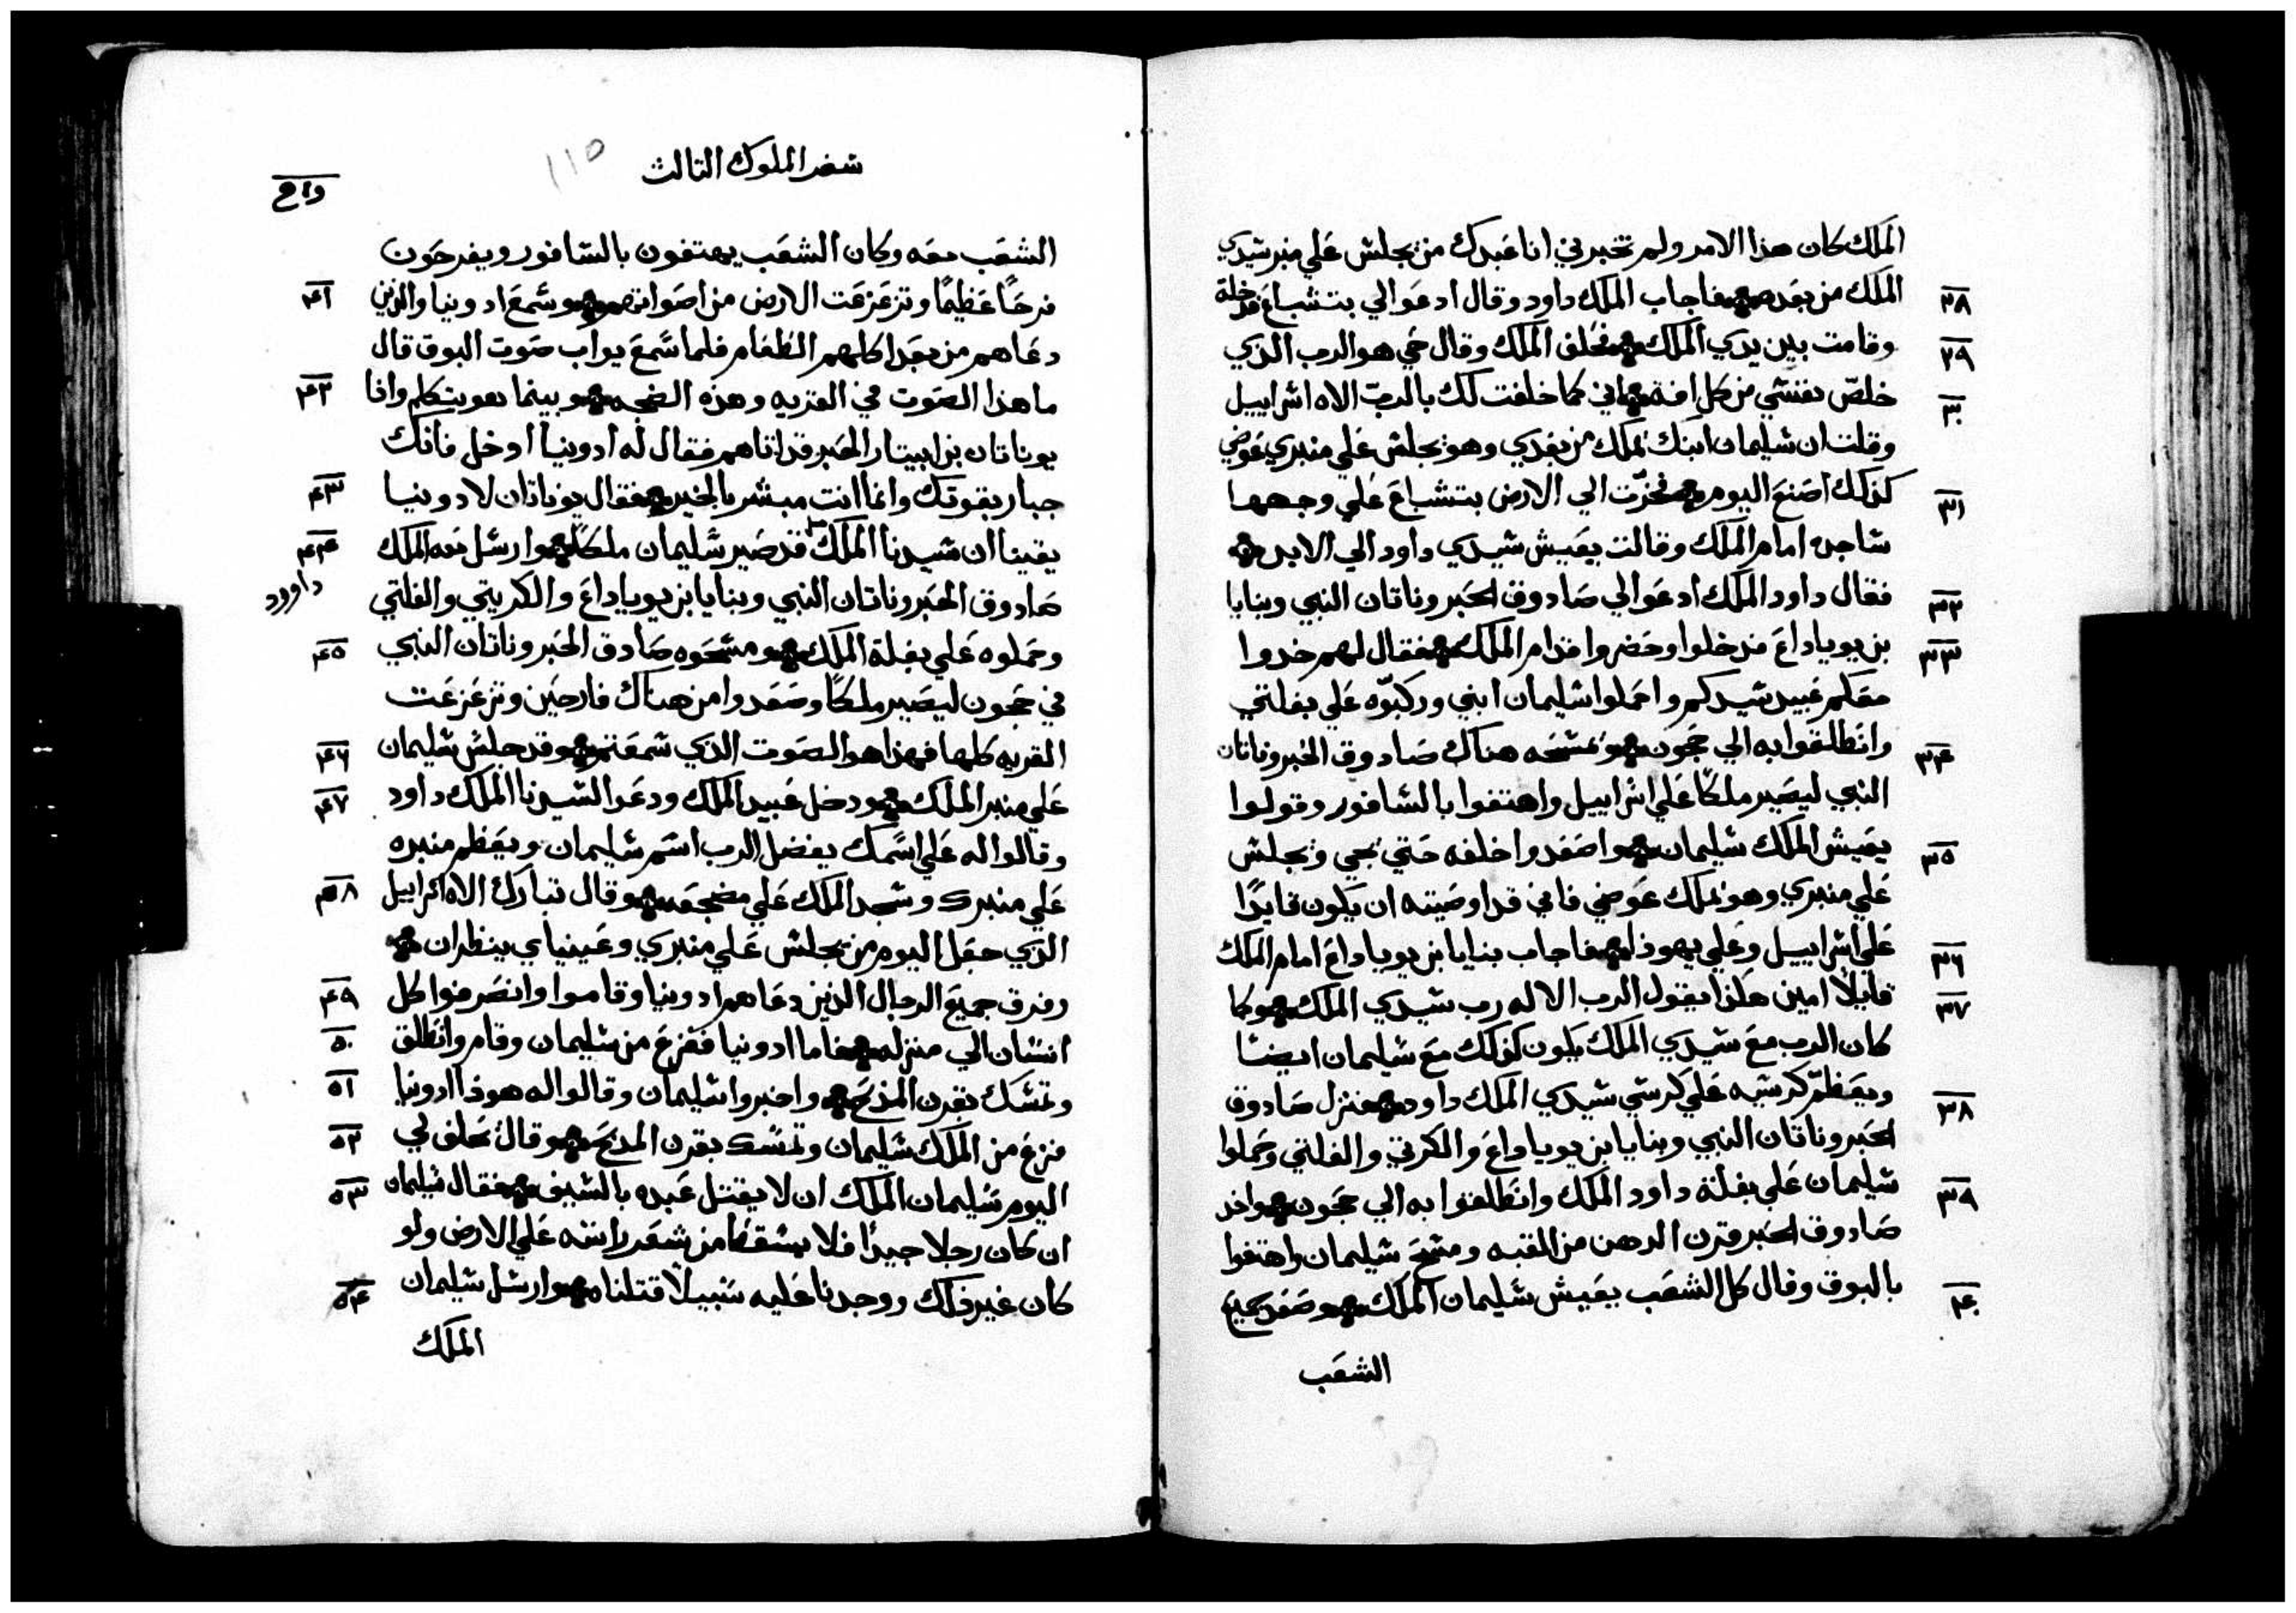 الملك كان هذا الامر ولم تخبرني انا عبدك من يجلس علي منبر شيدي
٢٨ الملك من بعده فاجاب الملك داود وقال ادعوا لي بتشباع فدخلة
٢٩ وقامت بين يدي الملك فحلف الملك وقال حي هو الرب الذي
٣٠ خلص نفشي من كل افه اني كما حلفت لك بالرب الاه اشراييل
وقلت ان شليمان ابنك يملك من بعدي وهو يجلش علي منبري عوضي
٣١ كذلك اصنع اليوم فخرّت الي الارض بتشباع علي وجهها
شاجده امام الملك وقالت يعيش شيدي داود الي الابد
٣٢ فقال داود الملك ادعوا لي صادوق الحبر وناتان النبي وبنايا
٣٣ بن يوياداع فدخلوا وحضروا قدام الملك فقال لهم خدوا
معكم عبيد شيدكم واحملوا شليمان ابني وركبّوه علي بغلتي
٣٤ وانطلقوا به الي جحون ويمشحه هناك صادوق الحبر وناتان
النبي ليصير ملكًا علي اشراييل واهتفوا بالشافور وقولوا
٣٥ يعيش الملك شليمان واصعدوا خلفه حتي يجي ويجلش
علي منبري وهو يملك عوضي فاني قد اوصيته ان يكون قايدًا
٣٦ علي اشراييل وعلي يهوذا فاجاب بنايا بن يوياداع امام الملك
٣٧ قايلًا امين هكذا يقول الرب الاله رب شيدي الملك وكما
كان الرب مع شيدي الملك يكون كذلك مع شليمان ايضا
٣٨ ويعظّم كرشيه علي كرشي شيدي الملك داود فنزل صادوق
الحبر وناتان النبي وبنايا بن يوياداع والكرتي والفلتي وحملوا
٣٩ شليمان علي بغلة داود الملك وانطلقوا به الي جحون واخد
صادوق الحبر قرن الدهن من القبه ومشح شليمان واهتفوا
٤٠ بالبوق وقال كل الشعب يعيش شليمان الملك وصعد جميع
الشعب
شفر الملوك التالت
١١٥
الشعب معه وكان الشعب يهتفون بالشافور ويفرحون
٤١ فرحًا عظيمًا وتزعزعت الارض من اصواتهم وشمع ادونيا والذين
دعاهم من بعد اكلهم الطعام فلما شمع يواب صوت البوق قال
٤٢ ما هذا الصوت في القريه وهذه الضجه وبينما هو يتكلم واذا
يوناتان بن ابيتار الحبر قد اتاهم فقال له ادونيا ادخل فانك
٤٣ جبار بقوتك وانما انت مبشر بالخير فقال يوناتان لادونيا
٤٤ يقينا ان شيدنا الملك قد صير شليمان ملكًا وارشل معه الملك
داوود
صادوق الحبر وناتان النبي وبنايا بن يوياداع والكريتي والفلتي
٤٥ وحملوه علي بغلة الملك ومشحوه صادق الحبر وناتان النبي
في جحون ليصير ملكًا وصعدوا من هناك فارحين وتزعزعت
٤٦ القريه كلها فهذا هو الصوت الذي شمعتم وقد جلش شليمان
٤٧ علي منبر الملك ودخل عبيد الملك ودعوا لشيدنا الملك داود
وقالوا له علي اشمك يفضل الرب اشم شليمان ويعظم منبره
٤٨ علي منبرك وشجد الملك علي مضجعه وقال تبارك الاه اشراييل
الذي جعل اليوم من يجلش علي منبري وعينياي ينظران
٤٩ وفرق جميع الرجال الذين دعاهم ادونيا وقاموا وانصرفوا كل
٥٠ انشان الي منزله فاما ادونيا ففزع من شليمان وقام وانطلق
٥١ وتمشك بقرن المذبح واخبروا شليمان وقالوا له هوذا ادونيا
٥٢ فزع من الملك شليمان وتمشك بقرن المذبح وقال يحلف لي
٥٣ اليوم شليمان الملك ان لا يقتل عبده بالشيف فقال شليمان
ان كان رجلا جيدًا فلا يشقط من شعر راشه علي الارض ولو
٥٤ كان غير ذلك ووجدنا عليه شبيلًا قتلناه وارشل شليمان
الملك